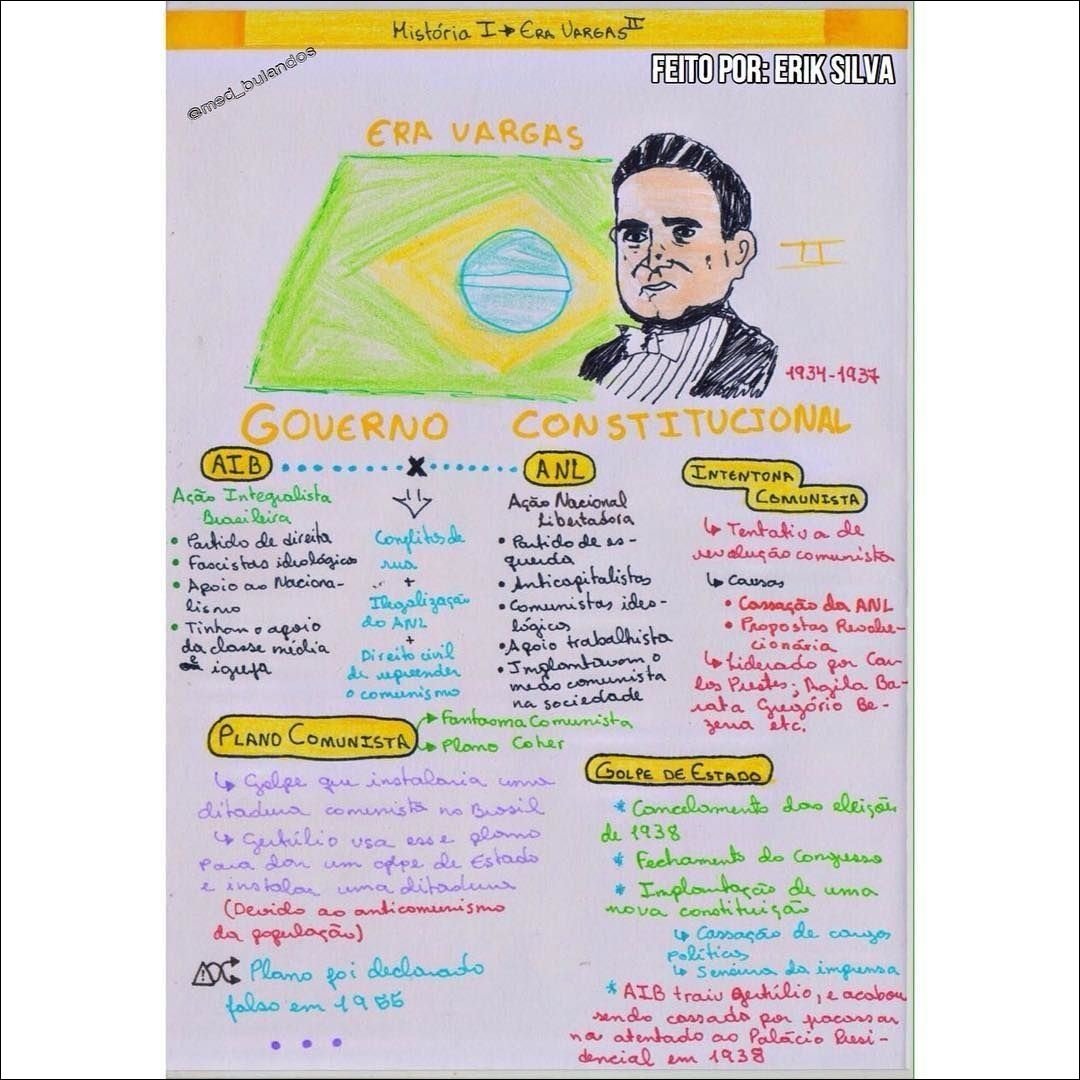 História I → ERA VARGAS II
@med_bulandos
FEITO POR: ERIK SILVA
ERA VARGAS
II
1934-1937
GOVERNO CONSTITUCIONAL
AIB
X
ANL
Ação Integralista
Brasileira
• Partido de direita
• Fascistas ideológicos
• Apoio ao Naciona-
lismo
• Tinham o apoio
da classe média
e igreja
Conflitos de
rua
+
Ilegalização
do ANL
+
Direito civil
de repreender
o comunismo
Ação Nacional
Libertadora
• Partido de es-
querda
• Anticapitalistas
• Comunistas ideo-
lógicos
• Apoio trabalhista
• Implantavam o
medo comunista
na sociedade
INTENTONA
COMUNISTA
↳ Tentativa de
revolução comunista
↳ Causas
• Cassação da ANL
• Propostas Revolu-
cionária
↳ Liderado por Car-
los Prestes; Agila Ba-
rata Gregório Be-
zerra etc.
PLANO COMUNISTA
→ Fantasma Comunista
→ Plano Coher
↳ Golpe que instalaria uma
ditadura comunista no Brasil
↳ Getúlio usa esse plano
para dar um golpe de Estado
e instalar uma ditadura
(Devido ao anticomunismo
da população)
Plano foi declarado
falso em 1955
• • •
GOLPE DE ESTADO
* Cancelamento das eleições
de 1938
* Fechamento do Congresso
* Implantação de uma
nova constituição
↳ Cassação de cargos
políticos
↳ Censura da imprensa
* AIB traiu Getúlio, e acabou
sendo cassado por fracassar
na atentado ao Palácio Presi-
dencial em 1938